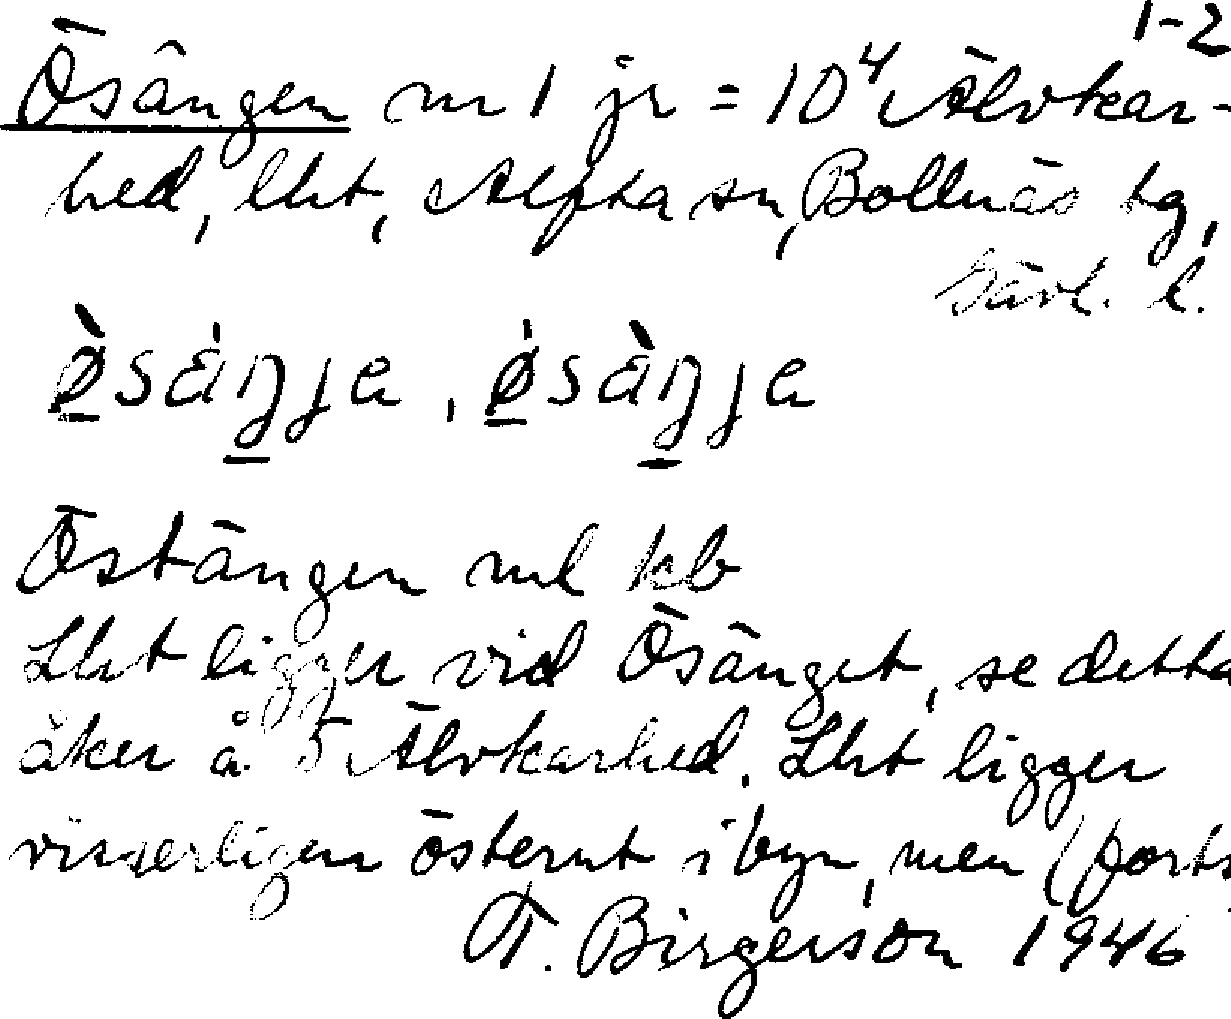 1-2
Ösängen nr 1 jr = 10⁴ Älvkar-
hed, lht, Alfta sn, Bollnäs tg,
Gävl. l.
ø̀sáŋja, ǿsàŋja
Östängen ml kb
Lht ligger vid Ösänget, se detta
åker å 5 Älvkarhed. Lht ligger
visserligen österut i byn, men (forts
T. Birgerson 1946